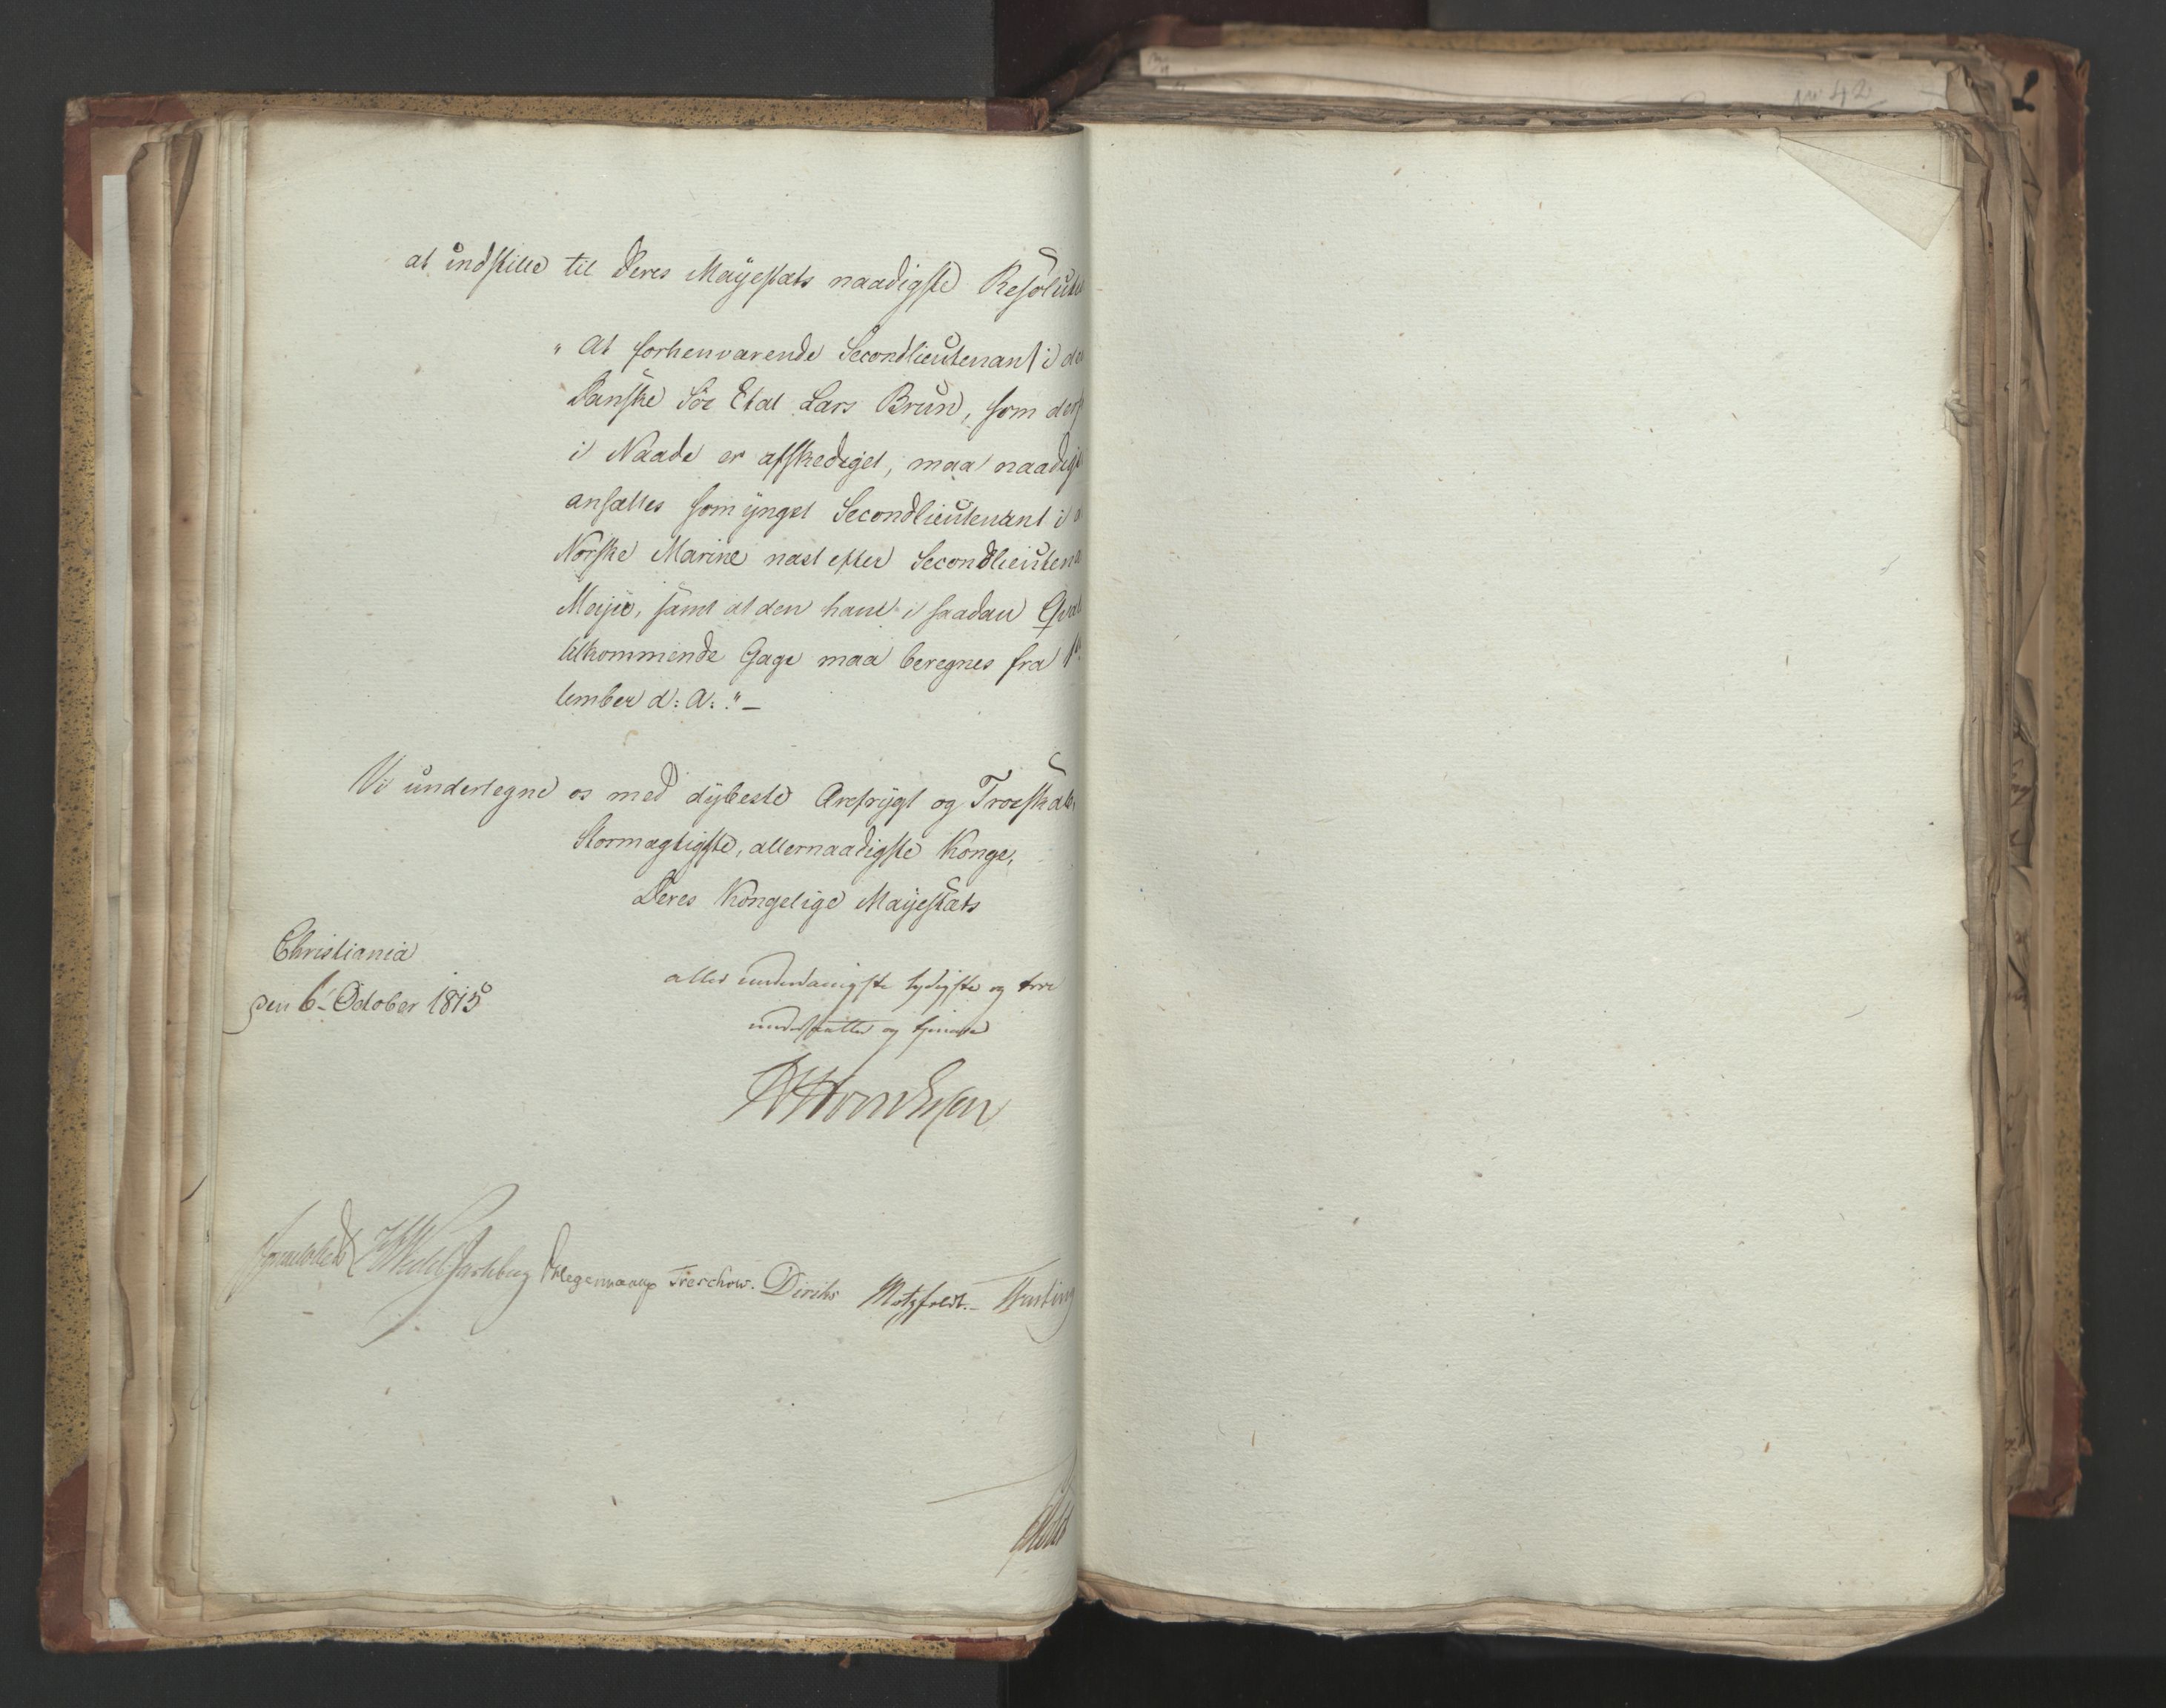 No 42
at indstille til Deres Majestæts naadigste Resolut
" At forhenværende Secondlieutenant i de
Danske Söe Etat Lars Brun, som der
i Naade er afskediget, maa naadigst
ansættes som yngst Secondlieutenant i
Norske Marine næst efter Secondlieutena
samt at den ham i saadan Qval
tilkommende Gage maa beregnes fra 1ste
tember d: A: " –
Vi undertegne os med dybeste Ærefrygt og Troeskab,
Stormægtigste, allernaadigste Konge,
Deres Kongelige Majestæts
Christiania
den 6te October 1815
aller underdanigste lydigste og troe
undersaatter og tjenere
von Essen
Sommerhielm HWedel Jarlsberg Krieger Treschow. Diriks Motzfeldt. – Hasting
Holst